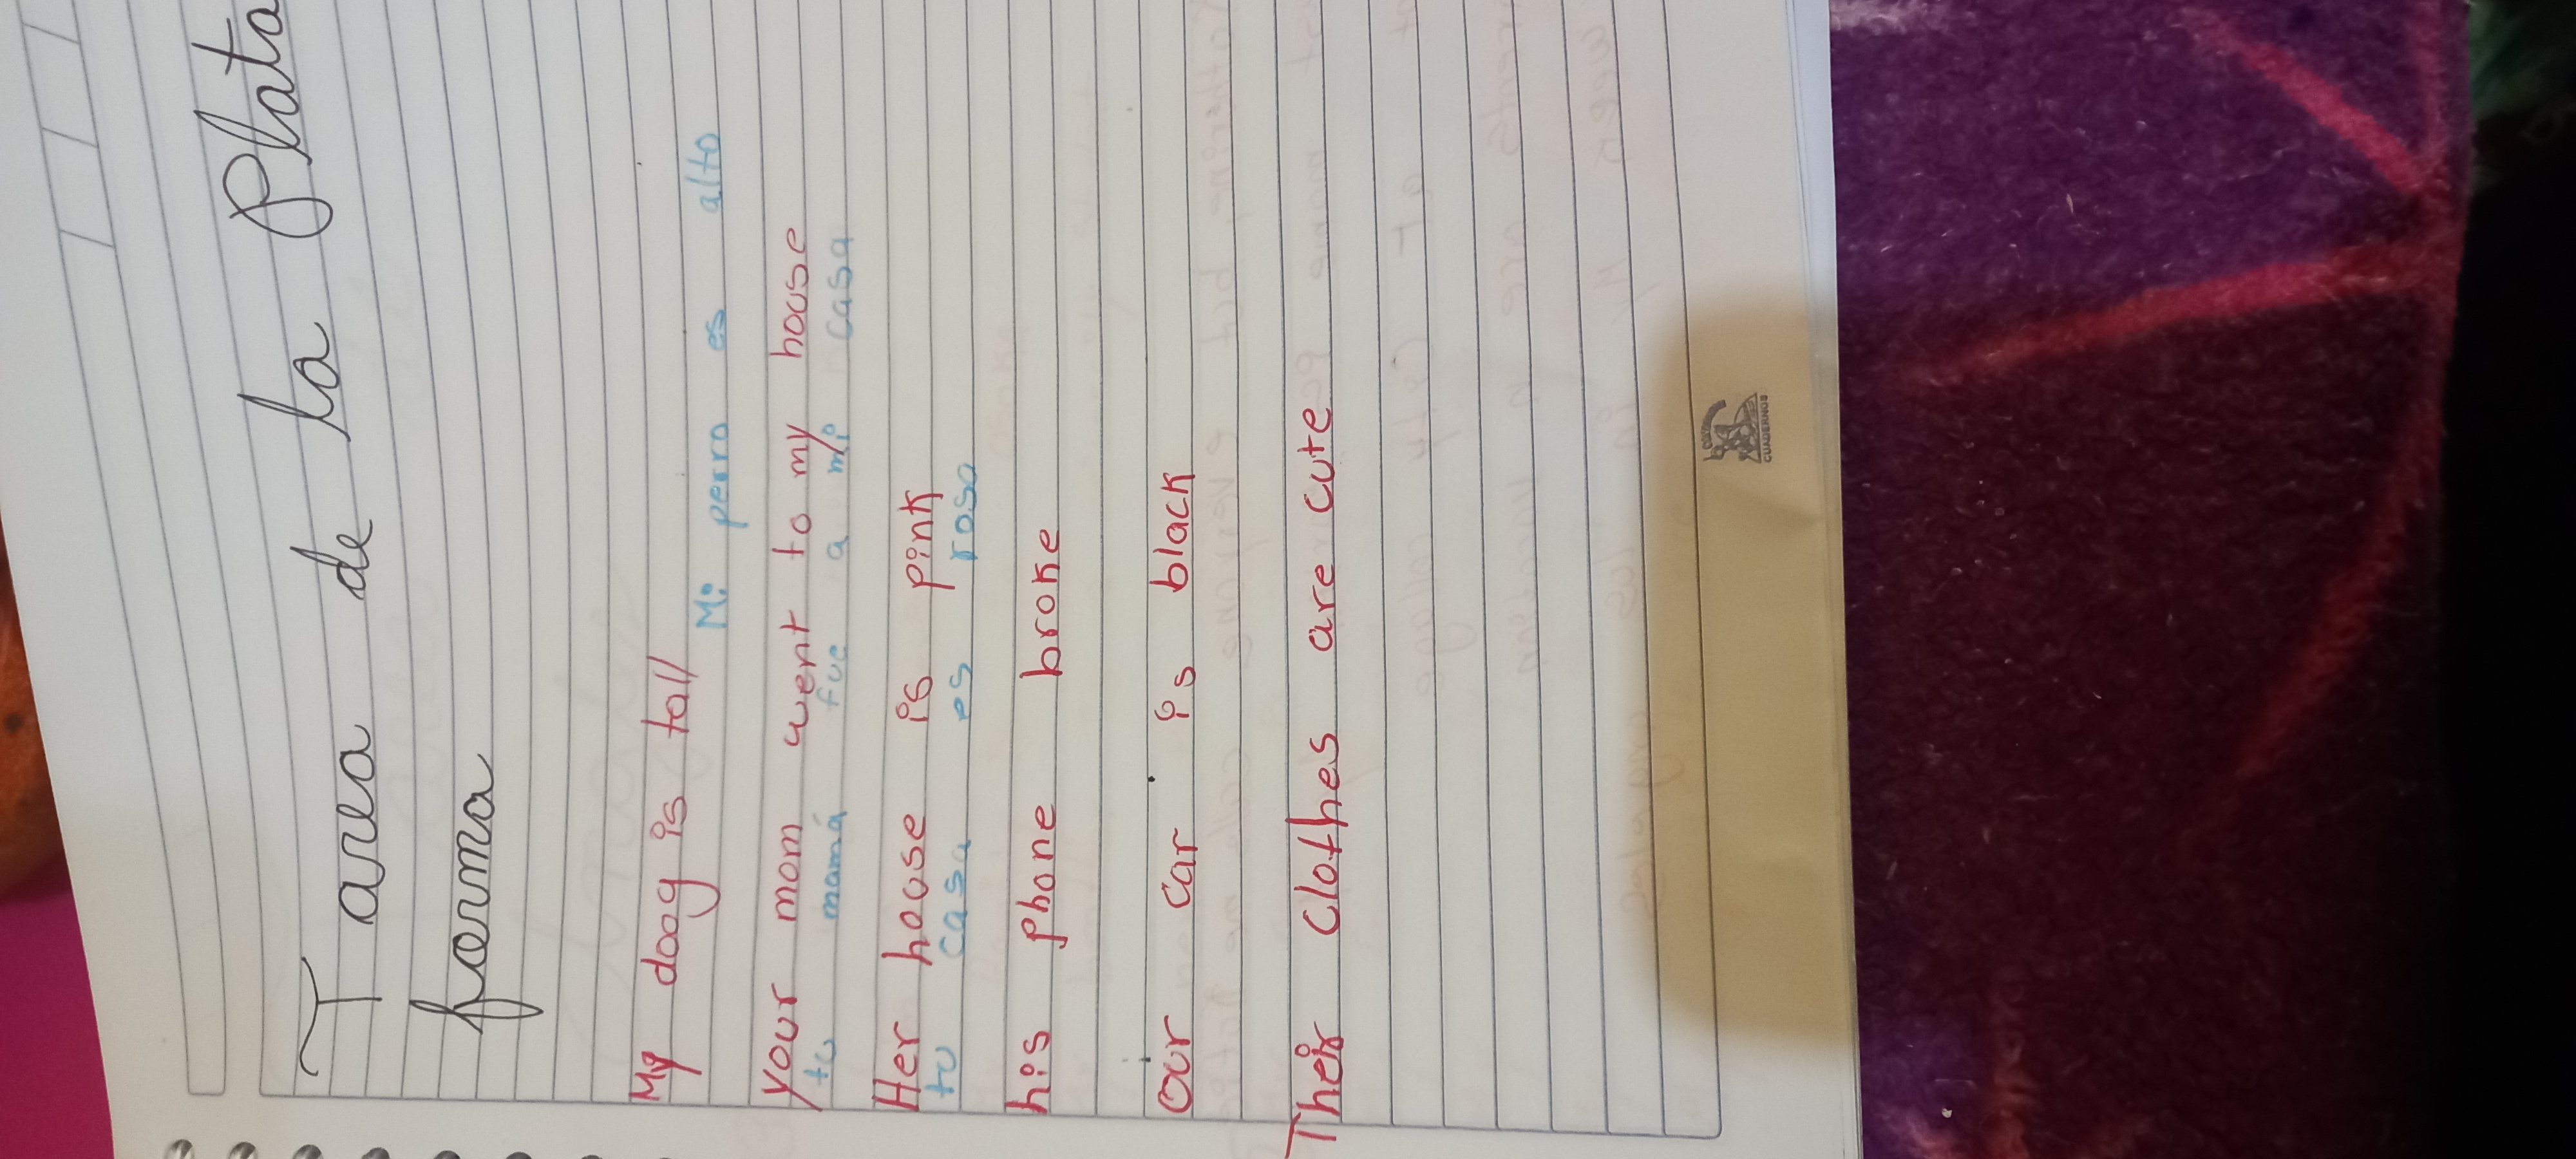 Tarea de la Plata
forma
My doog is tall
Mi perro es alto
your mom went to my house
tu mamá fue a mi casa
Her house is pink
tu casa es rosa
his phone broke
our car is black
Their clothes are cute
CUADERNOS